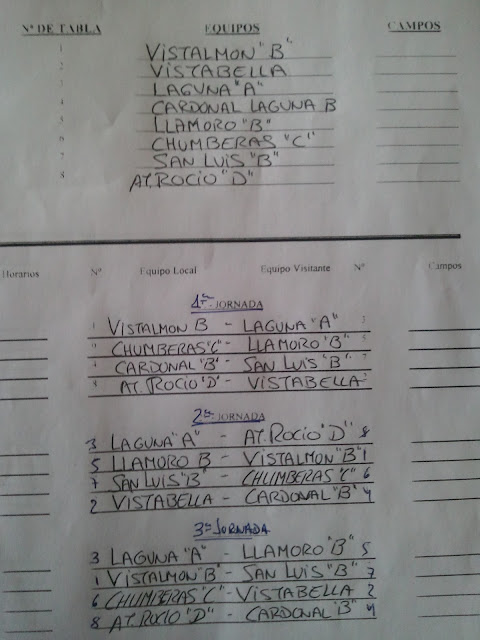 Nº DE TABLA EQUIPOS CAMPOS
1 VISTALMON "B"
2 VISTABELLA
3 LAGUNA "A"
4 CARDONAL LAGUNA B
5 LLAMORO "B"
6 CHUMBERAS "C"
7 SAN LUIS "B"
8 AT. ROCIO "D"
Horarios Nº Equipo Local Equipo Visitante Nº Campos
1ª JORNADA
1 VISTALMON B - LAGUNA "A" 3
CHUMBERAS "C" - LLAMORO "B"
4 CARDONAL "B" - SAN LUIS "B" 7
AT. ROCIO "D" - VISTABELLA 2
2ª JORNADA
3 LAGUNA "A" - AT. ROCIO "D" 8
5 LLAMORO B - VISTALMON "B" 1
7 SAN LUIS "B" - CHUMBERAS "C" 6
2 VISTABELLA - CARDONAL "B" 4
3ª JORNADA
3 LAGUNA "A" - LLAMORO "B" 5
1 VISTALMON "B" - SAN LUIS "B" 7
6 CHUMBERAS "C" - VISTABELLA 2
8 AT. ROCIO "D" - CARDONAL "B" 4